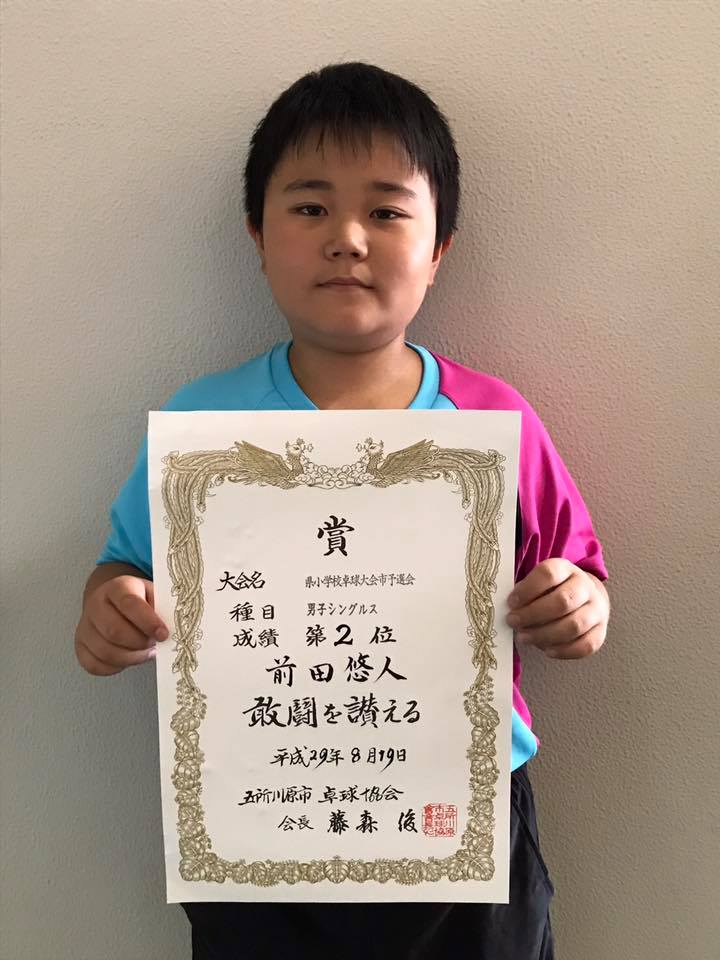 賞
大会名 県小学校卓球大会市予選会
種目 男子シングルス
成績 第2位
前田悠人
敢闘を讃える
平成29年8月19日
五所川原市卓球協会
会長 藤森 俊